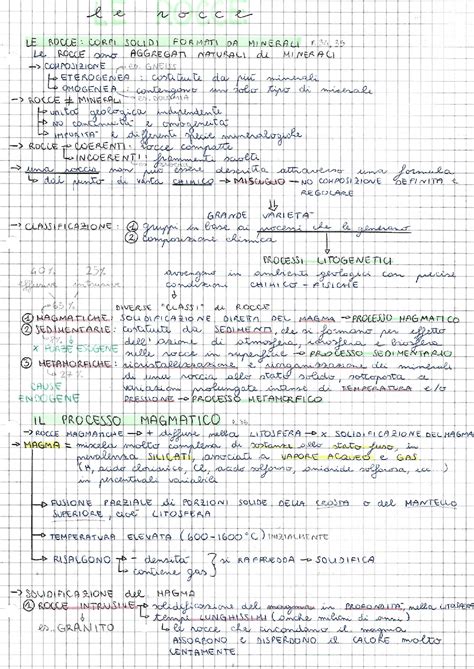 le rocce
LE ROCCE: CORPI SOLIDI FORMATI DA MINERALI P. 34, 35
LE ROCCE sono AGGREGATI NATURALI di MINERALI
→ COMPOSIZIONE es. GNEISS
↳ ETEROGENEA: costituite da più minerali
↳ OMOGENEA: contengono un solo tipo di minerale
→ ROCCE ≠ MINERALI es. DOLOMIA
↳ unità geologica indipendente
↳ NO continuità e omogeneità
↳ IMPURITÀ e differenti specie mineralogiche
→ ROCCE COERENTI: rocce compatte
↳ INCOERENTI: frammenti sciolti
→ una roccia non può essere descritta attraverso una formula
↳ dal punto di vista CHIMICO → MISCUGLIO – NO COMPOSIZIONE DEFINITA e
REGOLARE
GRANDE VARIETÀ
→ CLASSIFICAZIONE: ① gruppi in base ai processi che le generano
② composizione chimica
PROCESSI LITOGENETICI
40% 25% avvengono in ambienti geologici con precise
effusive intrusive condizioni CHIMICO - FISICHE
65% DIVERSE "CLASSI" di ROCCE
① MAGMATICHE: SOLIDIFICAZIONE DIRETTA DEL MAGMA → PROCESSO MAGMATICO
② SEDIMENTARIE: costituite da SEDIMENTI, che si formano per effetto
8% dell'azione di atmosfera, idrosfera e biosfera
x FORZE ESOGENE sulle rocce in superficie → PROCESSO SEDIMENTARIO
③ METAMORFICHE: ricristallizzazione, e riorganizzazione dei minerali
27% di una roccia allo stato solido, sottoposta a
CAUSE variazioni prolungate intense di TEMPERATURA e/o
ENDOGENE PRESSIONE → PROCESSO METAMORFICO
IL PROCESSO MAGMATICO P. 36
→ ROCCE MAGMATICHE → + diffuse nella LITOSFERA → x SOLIDIFICAZIONE DEL MAGMA
→ MAGMA = miscela molto complessa di sostanze allo stato fuso, in
prevalenza SILICATI, associati a VAPORE ACQUEO e GAS
(H, acido cloridrico, Cl, acido solforoso, anidride solforosa, ecc.)
in percentuali variabili
→ FUSIONE PARZIALE di PORZIONI SOLIDE DELLA CROSTA o del MANTELLO
SUPERIORE, cioè LITOSFERA
→ TEMPERATURA ELEVATA (600-1600°C) INIZIALMENTE
→ RISALGONO – densità si RAFFREDDA → SOLIDIFICA
↳ contiene gas
→ SOLIDIFICAZIONE del MAGMA
① ROCCE INTRUSIVE → solidificazione del magma in PROFONDITÀ, nella LITOSFERA
↳ tempi LUNGHISSIMI (anche milioni di anni)
es. GRANITO ↳ le rocce che circondano il magma
ASSORBONO e DISPERDONO il CALORE molto
LENTAMENTE